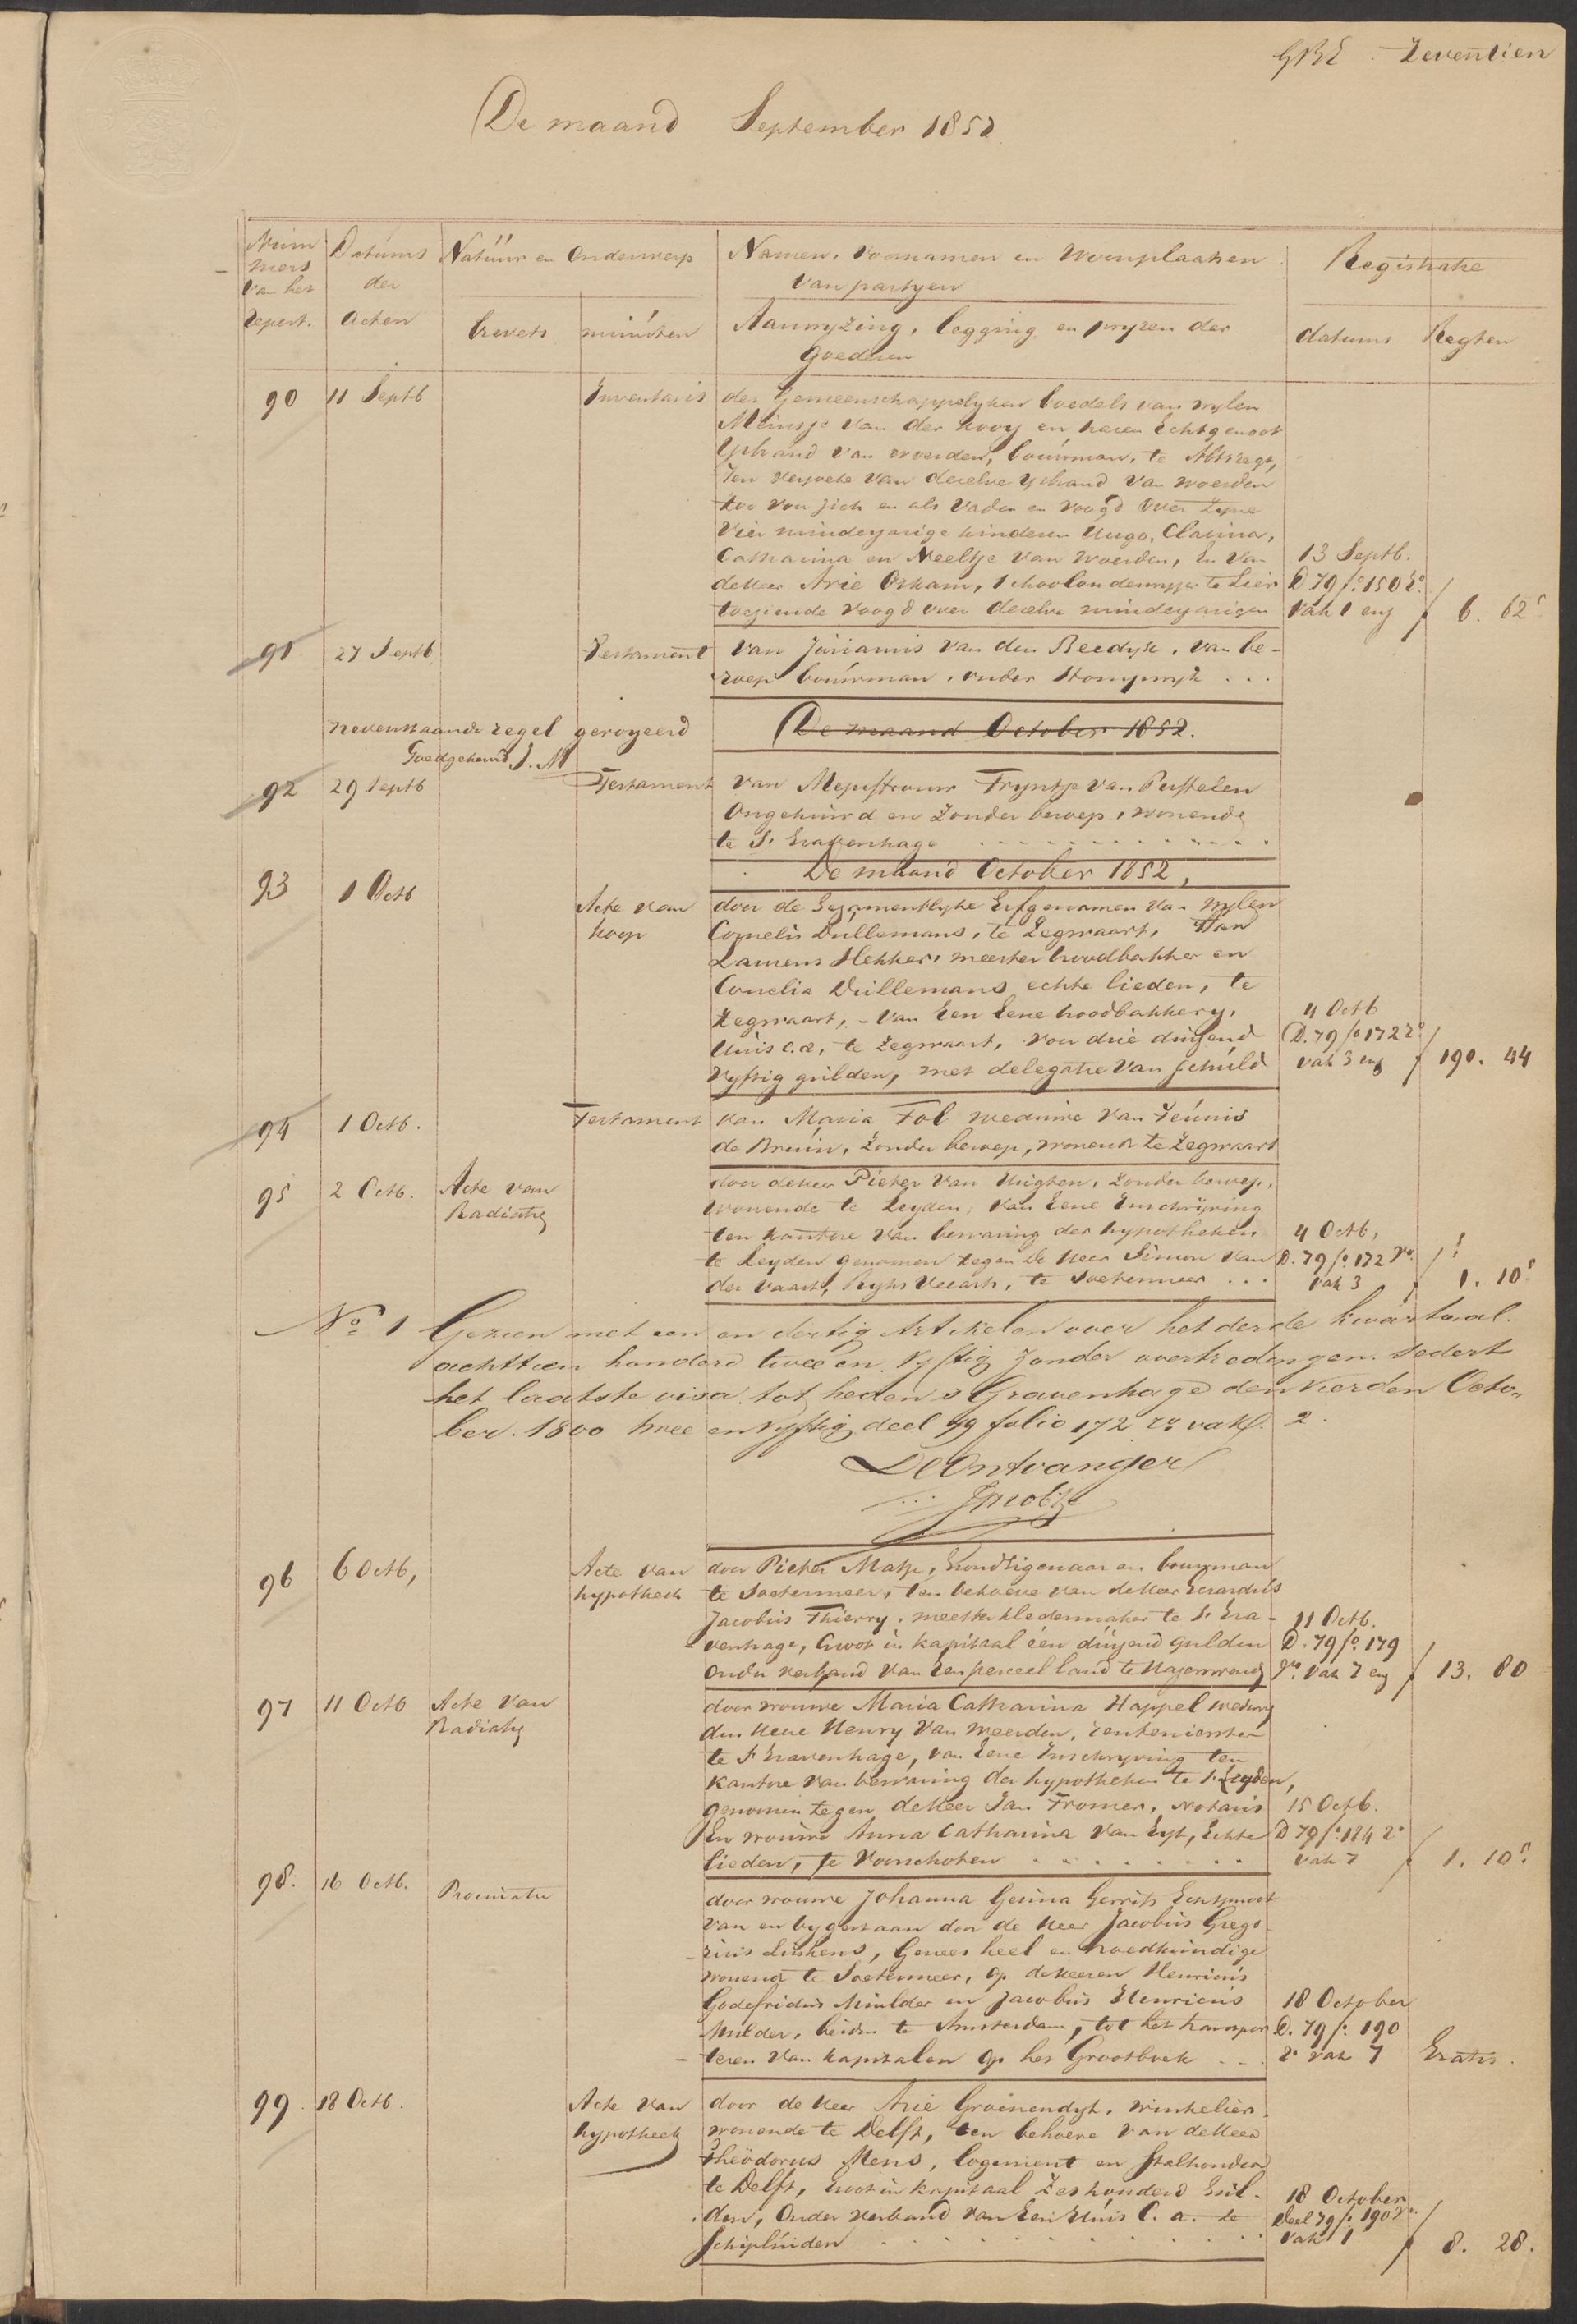 Zeventien
De maand September 1852
Num
mers
van het
Repert.
Datums
der
Acten
Natuur en Onderwerp
brevets
minuten
Namen, Voornamen en Woonplaatsen
van partyen
Aanwyzing, legging en pryzen der
goederen
Registratie
datums
Regten
90
11 Septb
Inventaris
des Gemeenschappelyken boedels van wylen
Meinsje van der Kooy en haren Echtgenoot
Ysbrand van Woerden, bouwman, te Abtsregt,
Ten verzoeke van denzelve Ysbrand van Woerden
zoo voor zich en als Vader en Voogd over zyne
Vier minderjarige kinderen Hugo, Clasina,
Catharina en Neeltje van Woerden, En van
deHeer Arie Oskam, Schoolonderwyzer te Lier
toeziende Voogd over dezelve minderjarigen
13 Septb.
D 79 fo. 150 ro.
Vak 1 env
f 6. 62 5
91
27 Septb
Testament
van Jurianus van den Reedyk, van be-
roep bouwman, onder Stompwyk ...
nevenstaande regel geroyeerd
Goedgekeurd J. M
De maand October 1852.
92
29 Septb
Testament
van Mejuffrouw Fryntje van
Ongehuwd en Zonder beroep, wonende
te S' Gravenhage
De maand October 1852,
93
1 Octb
Acte van
koop
door de Gezamentlyke Erfgenamen van wylen
Cornelis Dullemans, te Zegwaart, Aan
Lamens Hekker, meester broodbakker en
Cornelia Dullemans echte lieden, te
Zegwaart, - van Een Eene broodbakkery,
Huis c.a, te Zegwaart, voor drie duizend
Vyftig gulden, met delegatie van schuld
4 Octb
D. 79 fo 172 ro
vak 3 env
f 190. 44
94
1 Octb.
Testament
van Maria Tol weduwe van Teunis
de Bruin, Zonder beroep, wonende te Zegwaart
95
2 Octb.
Acte van
Radiatie
door deHeer Pieter van Hugten, Zonder beroep,
wonende te Leyden, van Eene Inschryving
ten kantore van bewaring der hypotheken
te Leyden genomen tegen De Heer Simon van
der Vaart, Ryks Veearts, te Soetermeer ...
4 Octb,
D. 79 fo. 172 ro.
Vak 3
f 1. 10 5
No 1 Gezien met een en dertig Artikelen over het derde kwartaal
achttien honderd twee en Vyftig Zonder overtredingen. Sedert
het laatste visa tot heden s Gravenhage den vierden Octo-
ber. 1800 twee en vyftig deel 79 folio 172 ro vak 2.
De Ontvanger
96
6 Octb,
Acte van
hypotheek
door Pieter Matze, Grondeigenaar en bouwman
te Soetermeer, ten behoeve van deHeer Gerardus
Jacobus Thierry, meester kledermaker te S' Gra-
venhage, Groot in kapitaal één duizend gulden
Onder verband van Een perceel land te Hazerswoude
11 Octb.
D. 79 fo. 179
Vo. Vak 7 env
f 13. 80
97
11 Octb
Acte van
Radiatie
door vrouwe Maria Catharina Happel weduwe
den Heer Henry van Weerden, rentenierster
te S' Gravenhage, van Eene Inschryving ten
Kantore van bewaring der hypotheken te Leyden,
genomen tegen deHeer Jan Fromer, Notaris
En vrouwe Anna Catharina van Eyk, Echte
lieden, te Voorschoten
15 Octb.
D 79 fo. 184 ro
Vak 7
f 1. 10 5
98.
16 Octb.
Procuratie
door vrouwe Johanna Gesina Gerrits Echtgenoot
van en bygestaan door de Heer Jacobus Grego
rius Luskens, Genees heel en Vroedkundige
wonend te Soetermeer, Op deHeeren Henricus
Godefridus Mulder en Jacobus Henricus
Mulder, beiden te Amsterdam, tot het transpor
teren van kapitalen Op het Grootboek ...
18 October
D. 79 fo. 190
ro vak 7
Gratis.
99.
18 Octb.
Acte van
hypotheek
door de Heer Arie Groenendyk, winkelier,
wonende te Delft, ten behoeve van deHeer
Theödorus Mens, logement en Stalhouder
te Delft, Groot in kapitaal Zeshonderd Gul-
den, Onder verband van Een Huis C. a. te
Schipluiden
18 October
Deel 79 fo. 190 Vo.
Vak 1
f 8. 28.